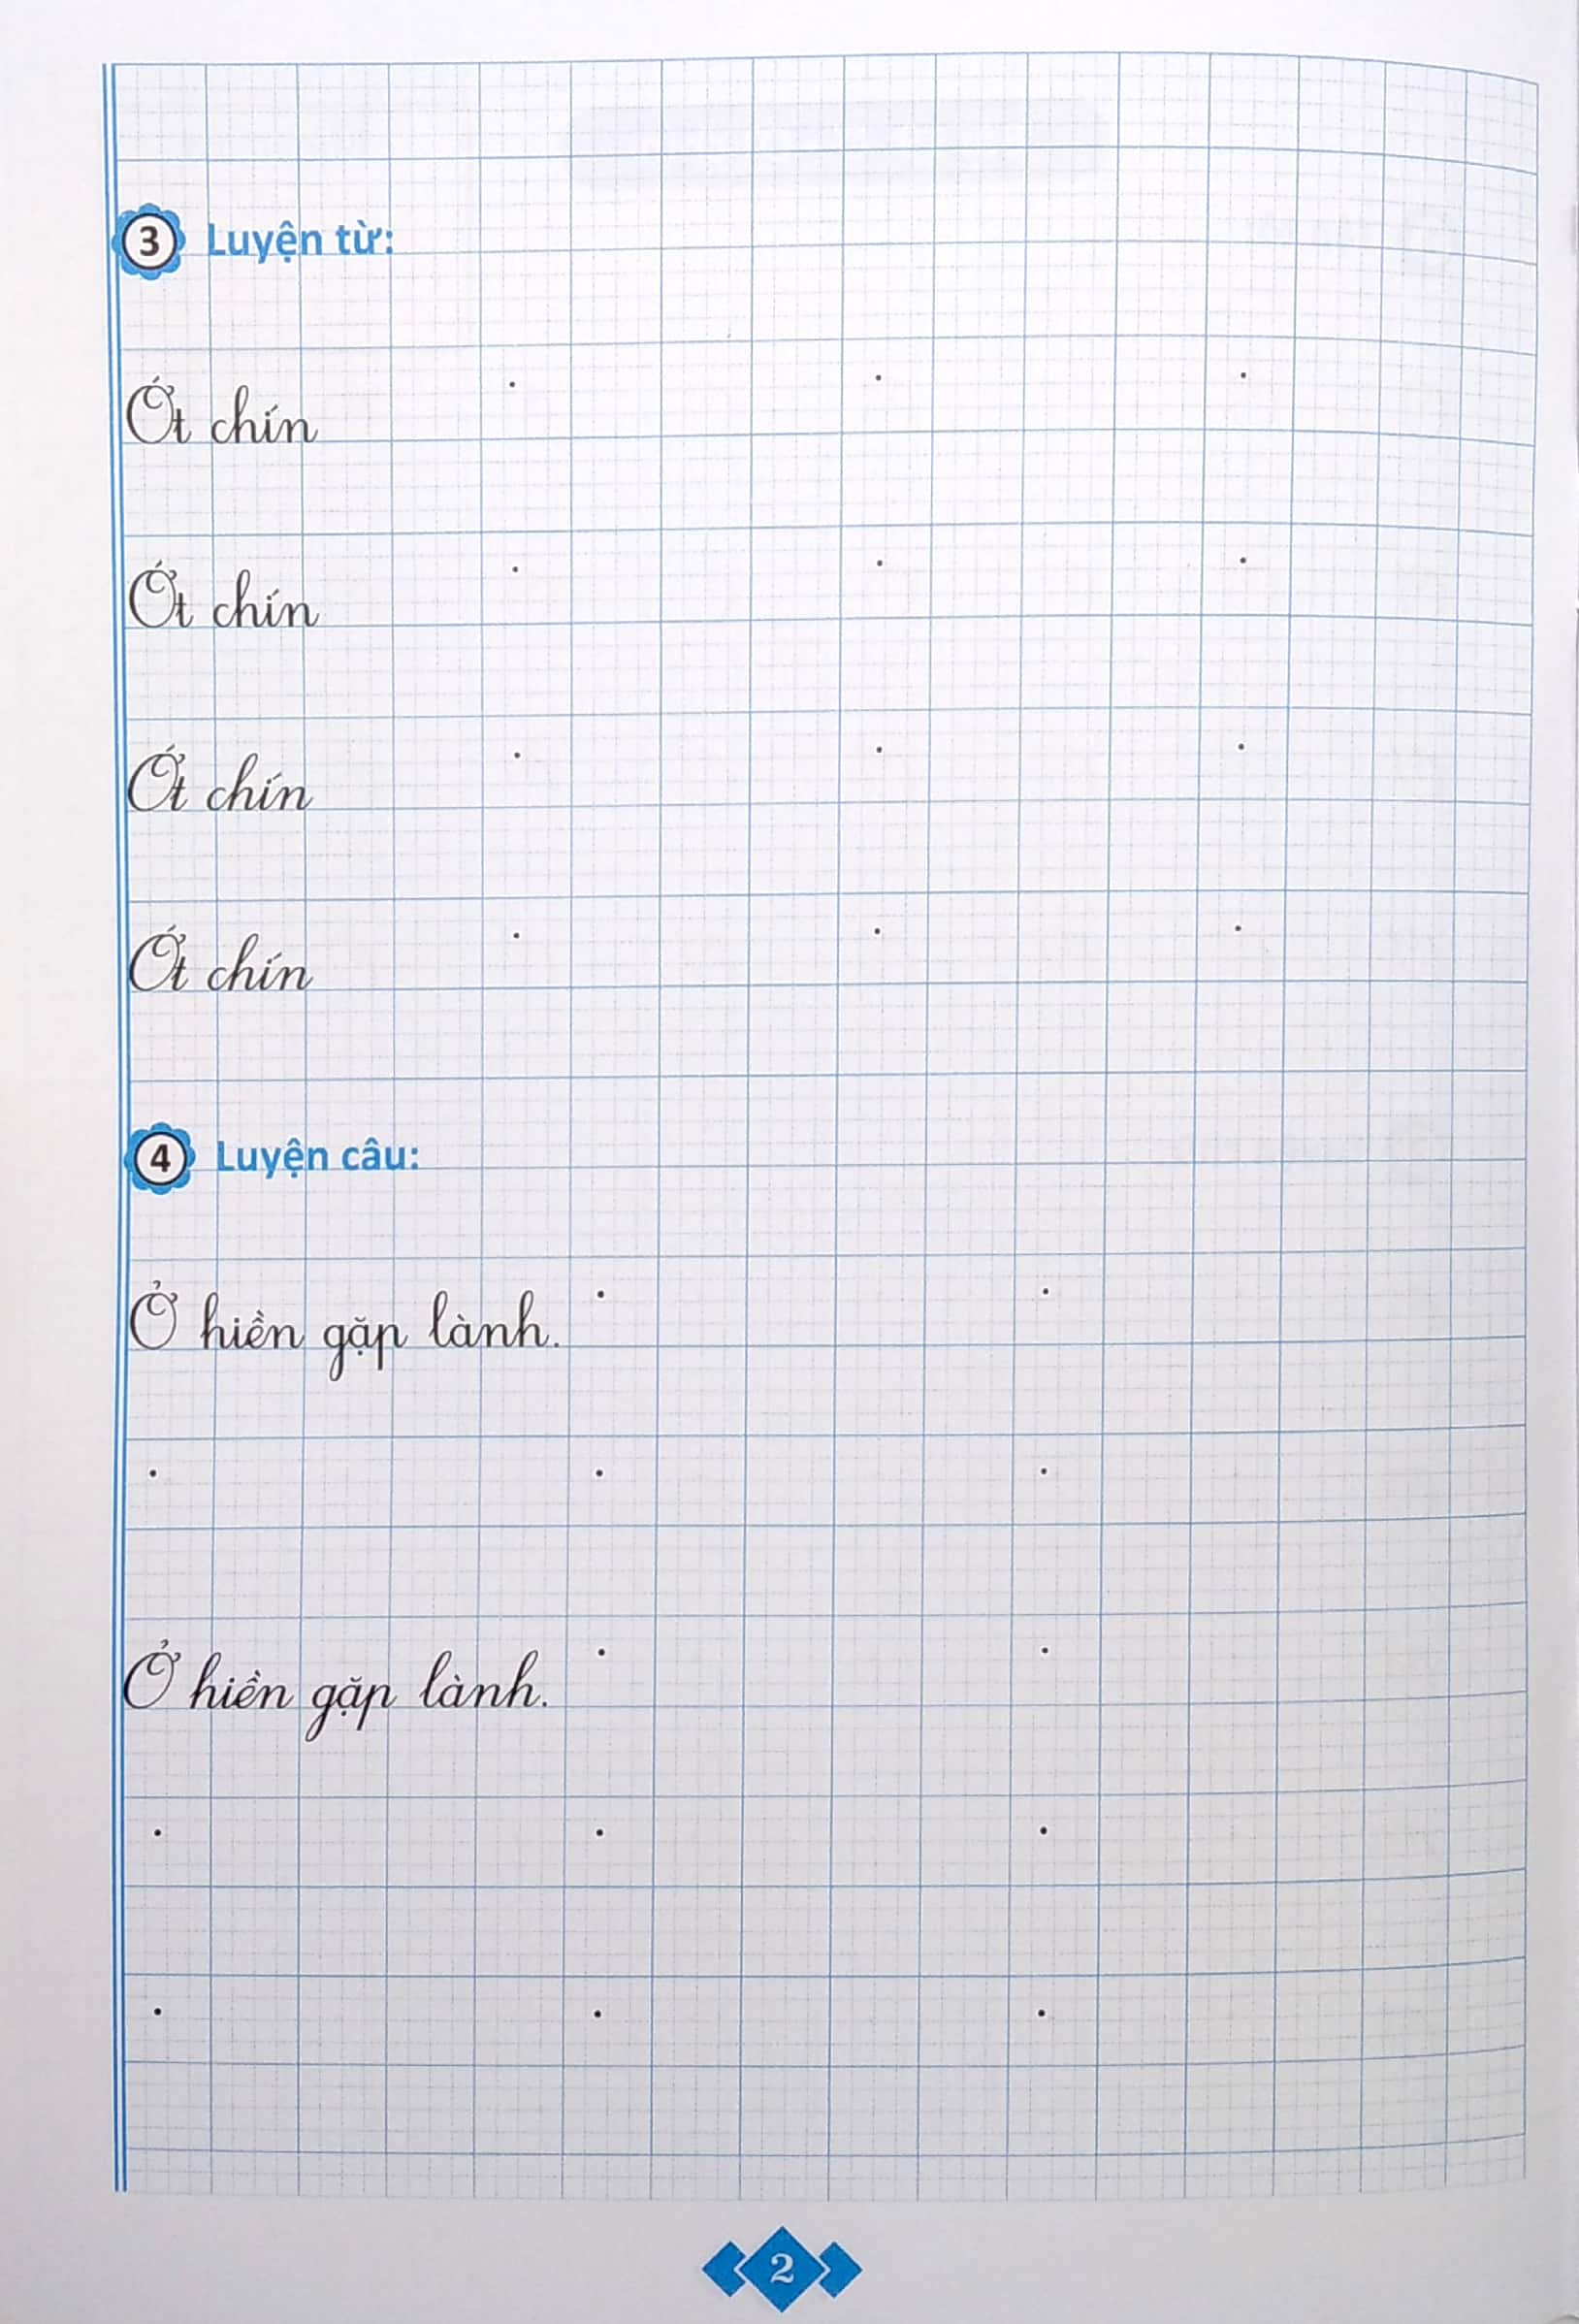 3 Luyện từ:
Ớt chín
Ớt chín
Ớt chín
Ớt chín
4 Luyện câu:
Ở hiền gặp lành.
Ở hiền gặp lành.
2